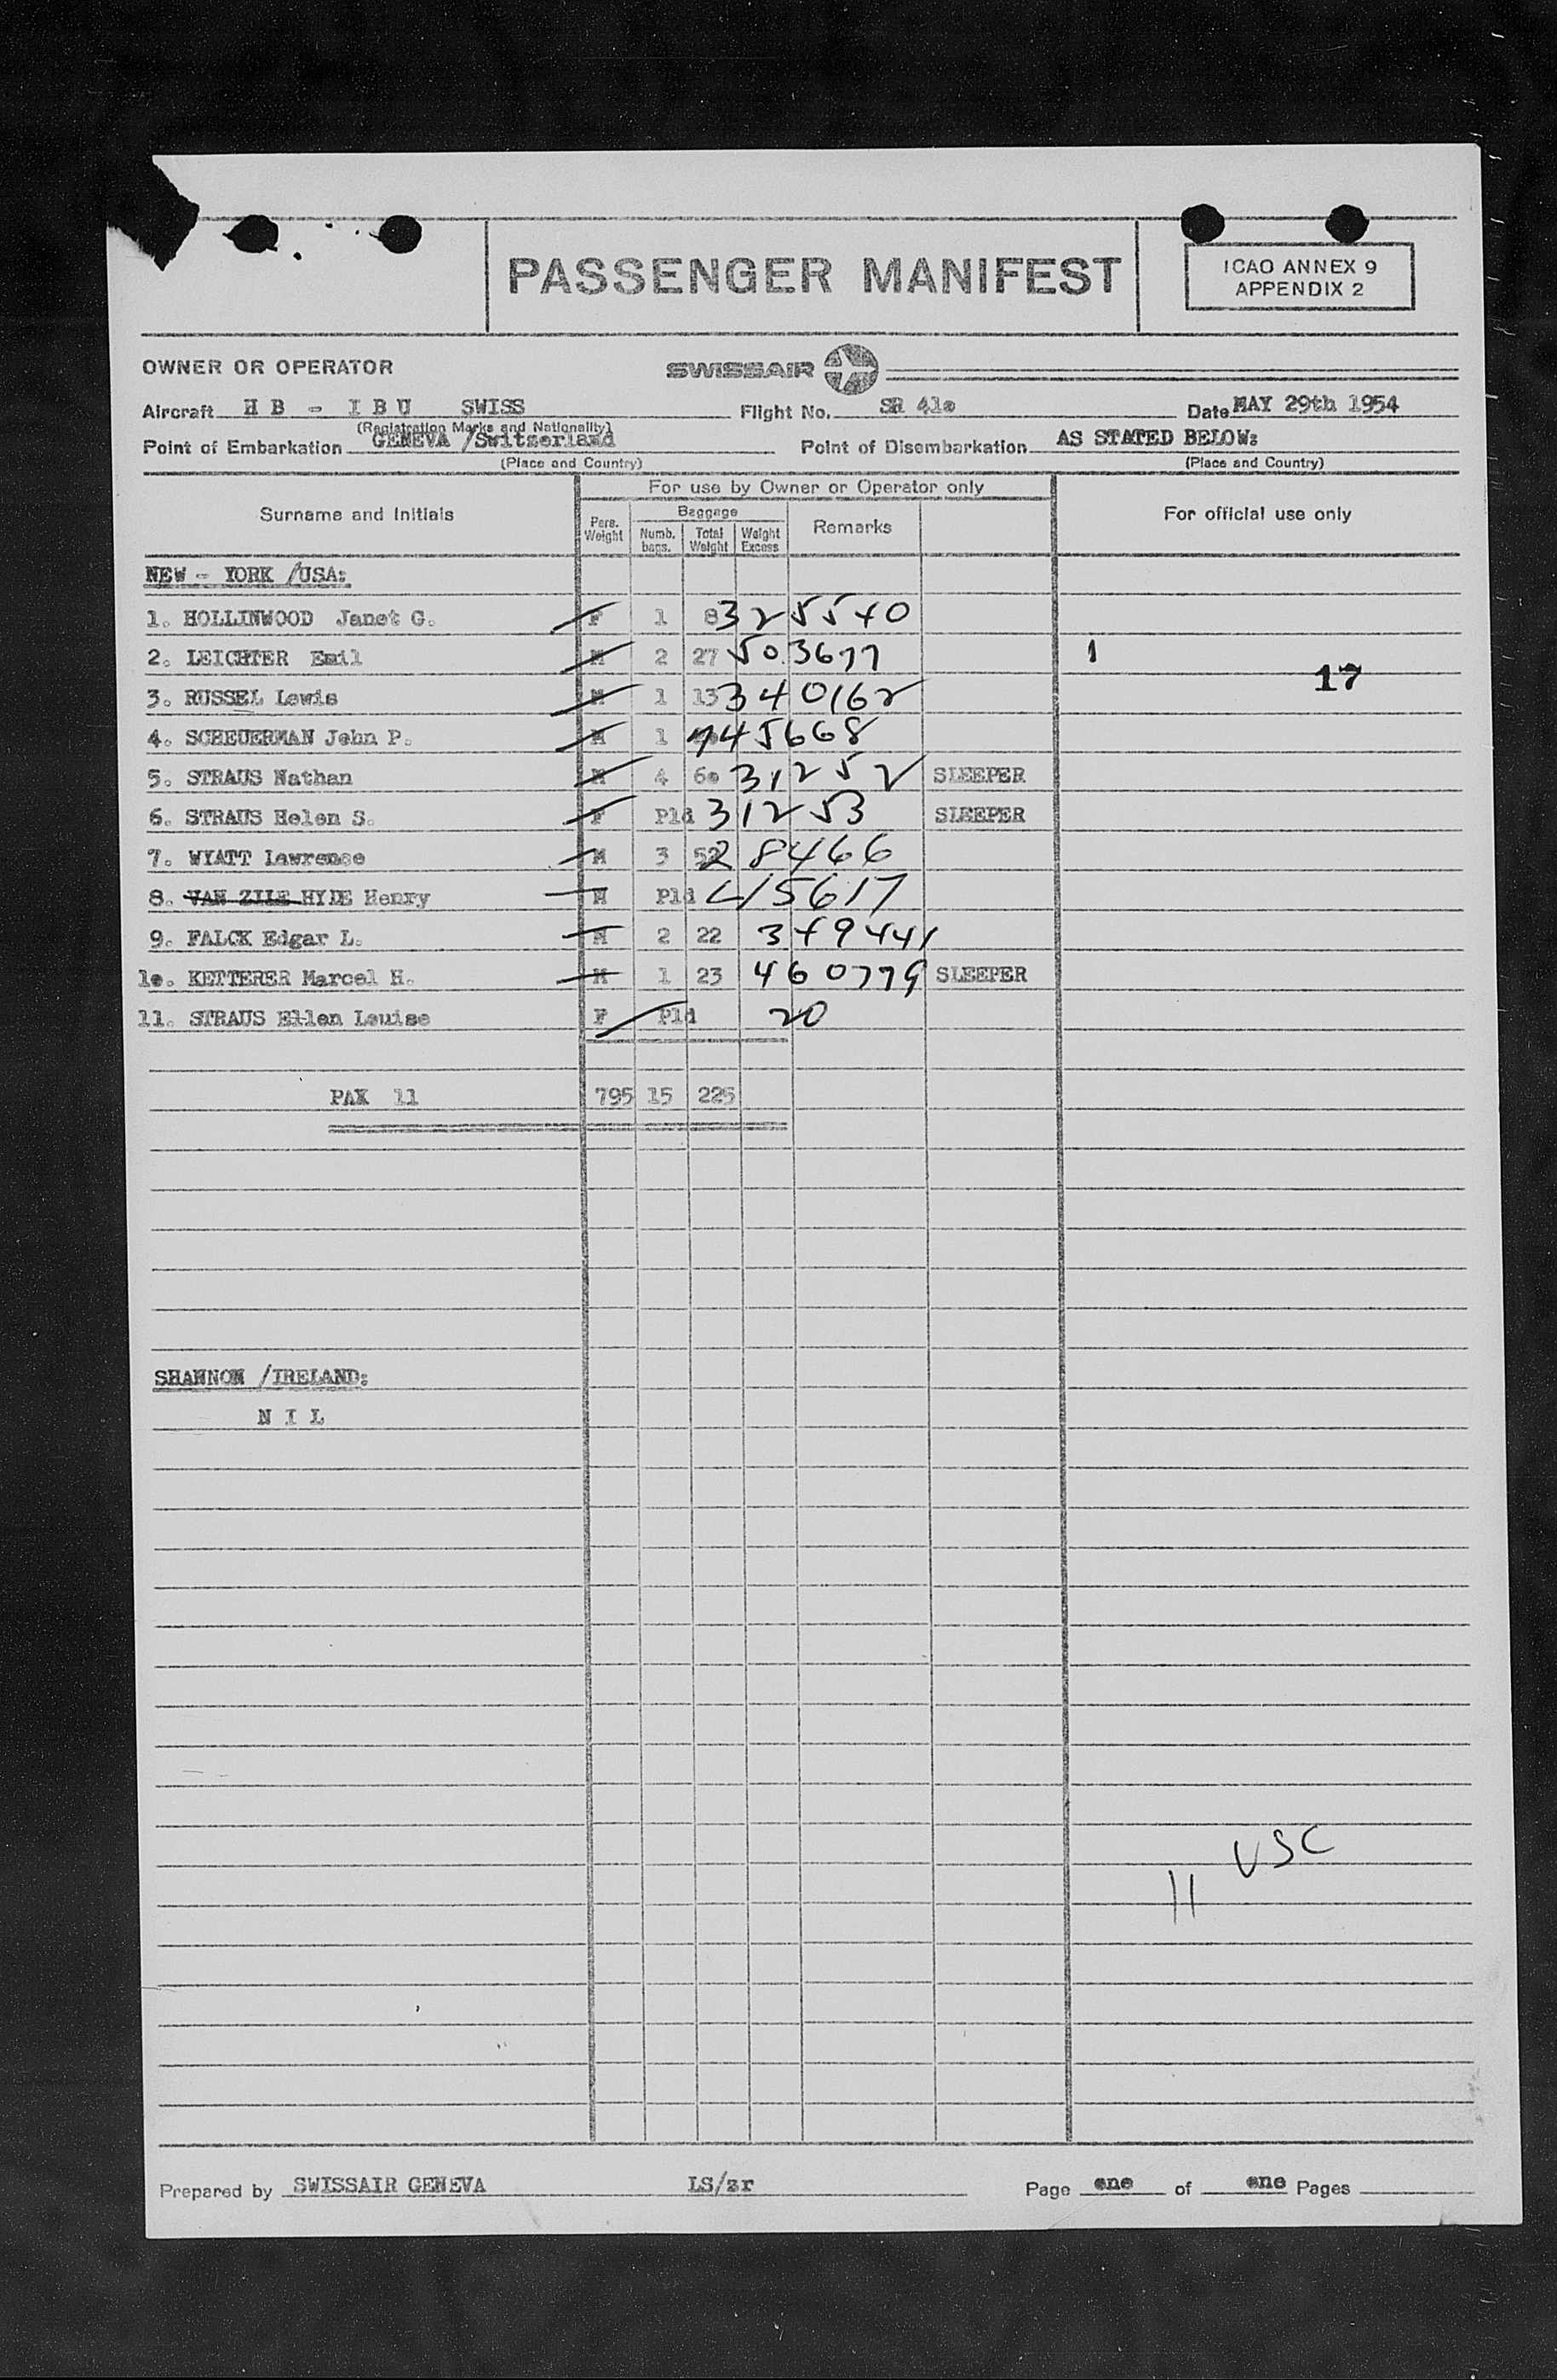 PASSENGER MANIFEST
ICAO ANNEX 9
APPENDIX 2
OWNER OR OPERATOR SWISSAIR
Aircraft H B - I B U SWISS Flight No. SR 41o Date MAY 29th 1954
(Registration Marks and Nationality)
Point of Embarkation GENEVA /Switzerland Point of Disembarkation AS STATED BELOW:
(Place and Country) (Place and Country)
For use by Owner or Operator only
Surname and Initials Pers. Weight Baggage Numb. bags. Total Weight Weight Excess Remarks For official use only
NEW - YORK /USA:
1. HOLLINWOOD Janet G. F 1 8 325540
2. LEICHTER Emil M 2 27 503677 1
17
3. RUSSEL Lewis M 1 13 340162
4. SCHEUERMAN John P. M 1 745668
5. STRAUS Nathan M 4 6o 31252 SLEEPER
6. STRAUS Helen S. F Pld 31253 SLEEPER
7. WYATT Lawrence M 3 52 28466
8. VAN ZILE HYDE Henry M Pld 415617
9. FALCK Edgar L. M 2 22 349441
1o. KETTERER Marcel H. M 1 23 460779 SLEEPER
11. STRAUS Ellen Louise F Pld 20
PAX 11 795 15 225
SHANNON /IRELAND:
N I L
USC
11
Prepared by SWISSAIR GENEVA LS/zr Page one of one Pages